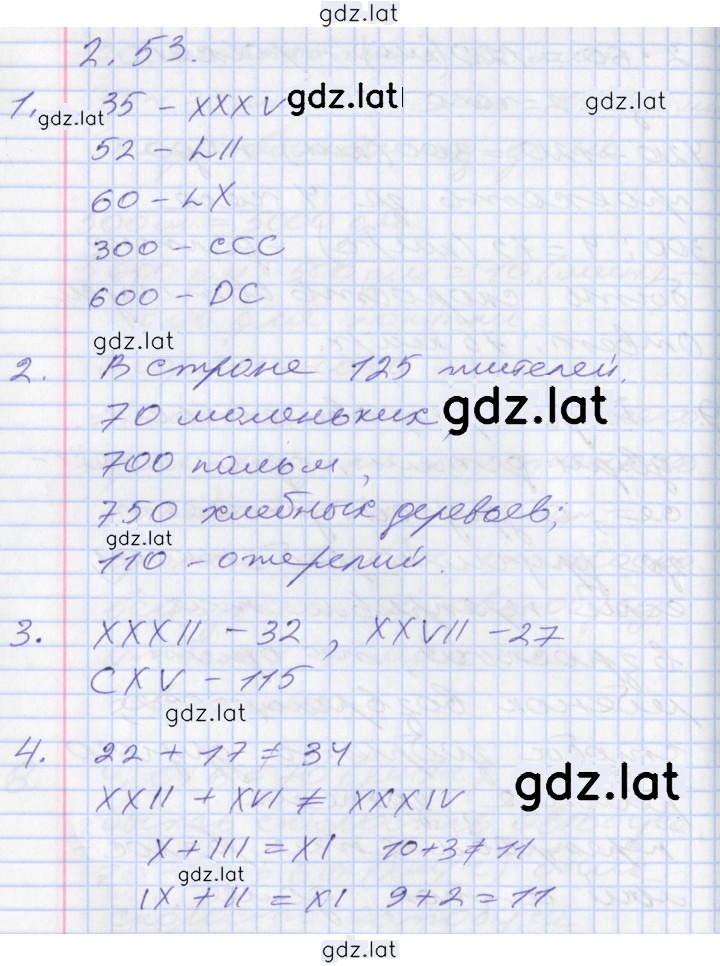 gdz.lat
2.53.
1. 35 - XXXV
gdz.lat gdz.lat gdz.lat
52 - LII
60 - LX
300 - CCC
600 - DC
gdz.lat
2. В стране 125 жителей.
70 маленьких,
gdz.lat
700 пальм,
750 хлебных деревьев;
gdz.lat
110 - ожерелий.
3. XXXII - 32, XXVII - 27
CXV - 115
gdz.lat
4. 22 + 17 ≠ 34
gdz.lat
XXII + XVI ≠ XXXIV
X + III = XI 10+3 ≠ 11
gdz.lat
IX + II = XI 9+2 = 11
gdz.lat